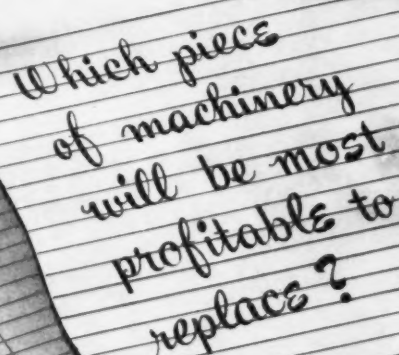 Which piece
of machinery
will be most
profitable to
replace?